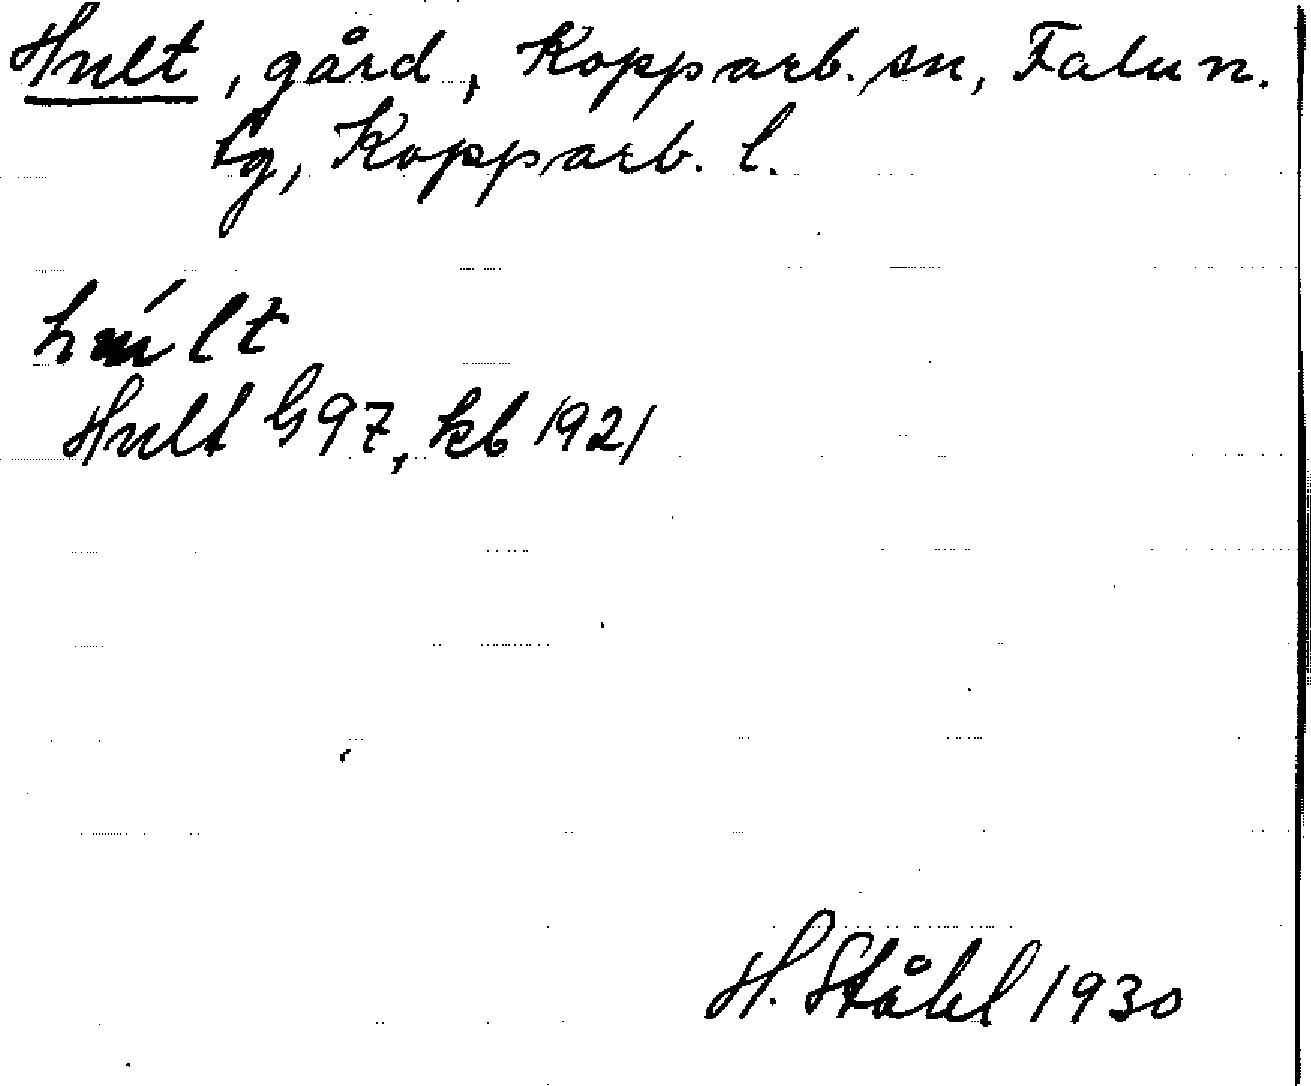 Hult, gård, Kopparb. sn, Falu n.
tg, Kopparb. l.
húlt
Hult G97, kb 1921
H. Ståhl 1930